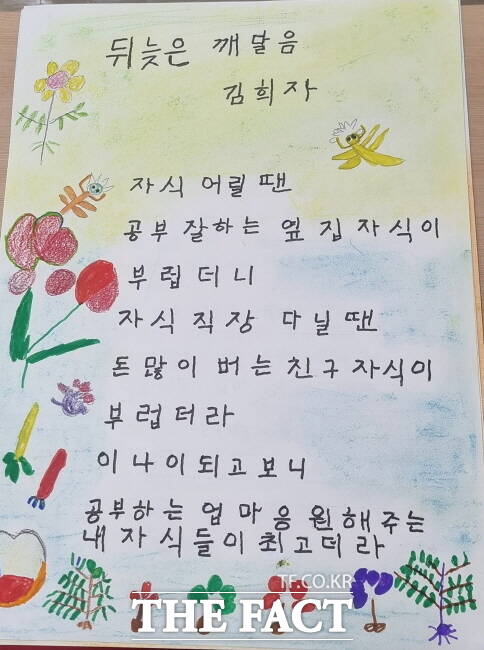 뒤늦은 깨달음
김희자
자식 어릴 땐
공부 잘하는 옆집 자식이
부럽더니
자식 직장 다닐 땐
돈 많이 버는 친구 자식이
부럽더라
이 나이 되고보니
공부하는 엄마 응원해 주는
내 자식들이 최고더라
TF.CO.KR
THE FACT